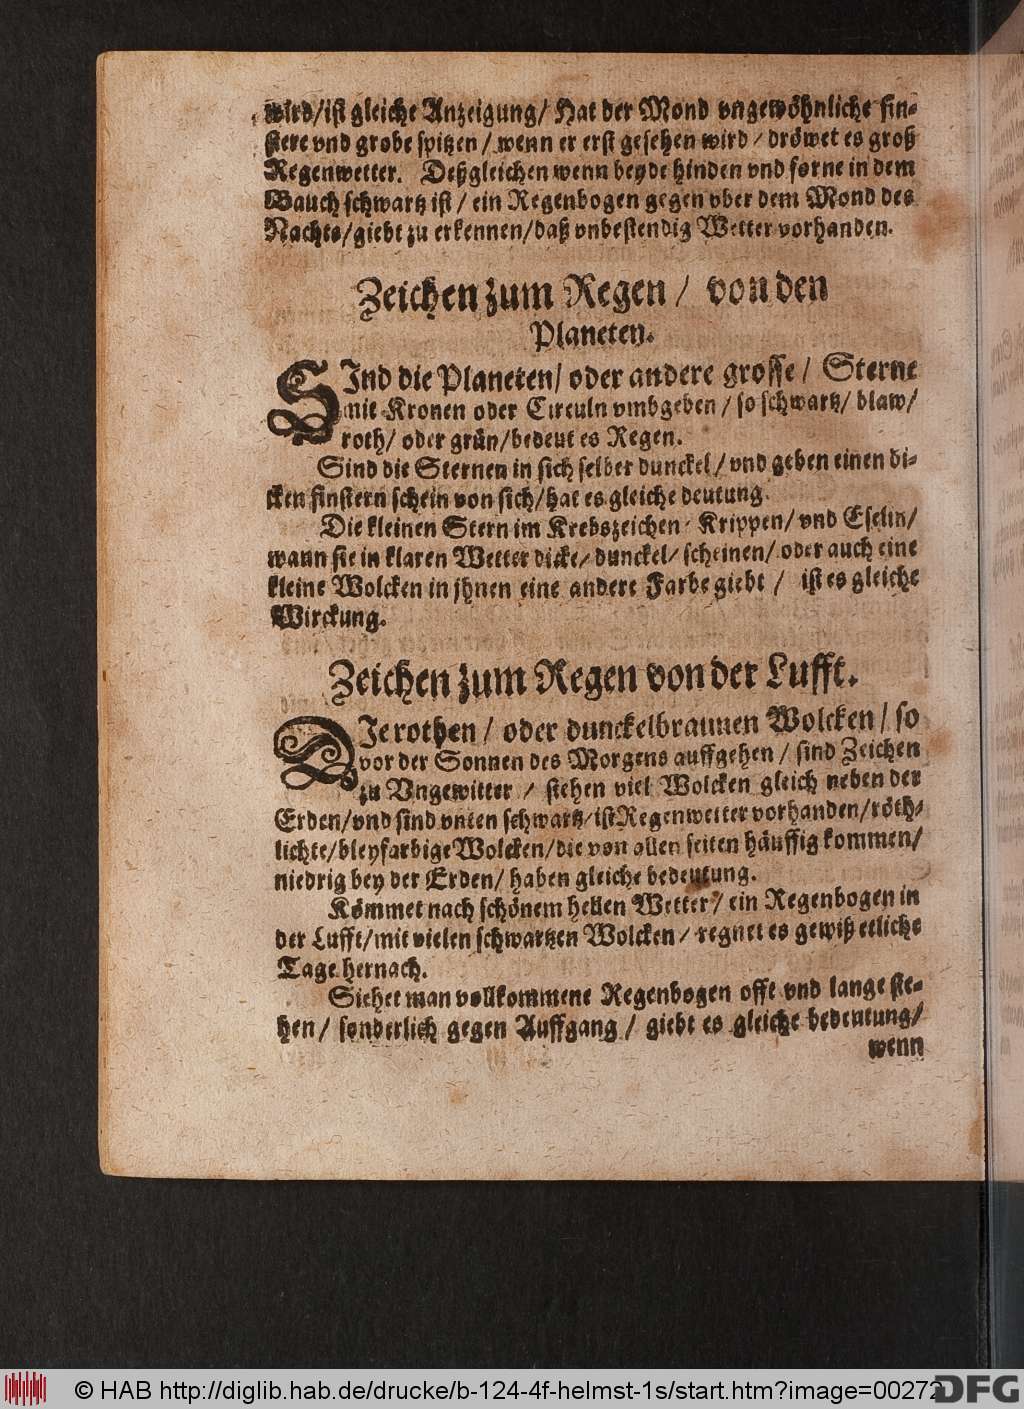 wird/ist gleiche Anzeigung/ Hat der Mond vngewöhnliche fin-
stere vnd grobe spitzen/ wenn er erst gesehen wird/ dröwet es groß
Regenwetter. Deßgleichen wenn beyde hinden vnd forne in dem
Bauch schwartz ist/ ein Regenbogen gegen vber dem Mond des
Nachts/giebt zu erkennen/daß vnbestendig Wetter vorhanden.
Zeichen zum Regen/ von den
Planeten.
SInd die Planeten/ oder andere grosse/ Sterne
mit Kronen oder Circuln vmbgeben/ so schwartz/ blaw/
roth/ oder grün/bedeut es Regen.
Sind die Sternen in sich selber dunckel/ vnd geben einen di-
cken finstern schein von sich/hat es gleiche deutung.
Die kleinen Stern im Krebszeichen Krippen/ vnd Eselin/
wann sie in klaren Wetter dicke/ dunckel/ scheinen/ oder auch eine
kleine Wolcken in jhnen eine andere Farbe giebt/ ist es gleiche
Wirckung.
Zeichen zum Regen von der Lufft.
DIe rothen/ oder dunckelbraunen Wolcken/ so
vor der Sonnen des Morgens auffgehen/ sind Zeichen
zu Vngewitter/ stehen viel Wolcken gleich neben der
Erden/vnd sind vnten schwartz/ist Regenwetter vorhanden/röth-
lichte/bleyfarbige Wolcken/die von allen seiten häuffig kommen/
niedrig bey der Erden/ haben gleiche bedeutung.
Kömmet nach schönem hellen Wetter/ ein Regenbogen in
der Lufft/mit vielen schwartzen Wolcken/ regnet es gewiß etliche
Tage hernach.
Siehet man vollkommene Regenbogen offt vnd lange ste-
hen/ sonderlich gegen Auffgang/ giebt es gleiche bedeutung/
wenn
© HAB http://diglib.hab.de/drucke/b-124-4f-helmst-1s/start.htm?image=00272
DFG